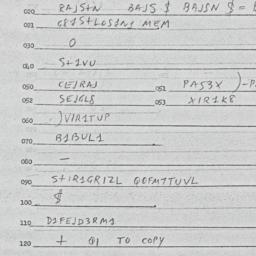 020 RAJS+N BAJS $ BAJSN $ =
021 MEM
030 O
040 S+1VU
050 CEJRAJ 051 PAS3X )-P
052 SEJGL8 053 XIR1K8
060 )VIR1TUP
070 B1BUL1
080 —
090 S+IR1GRIZL QOFM7TUVL
100 $
110 D1FEJD3RM1
120 + Q1 TO COPY